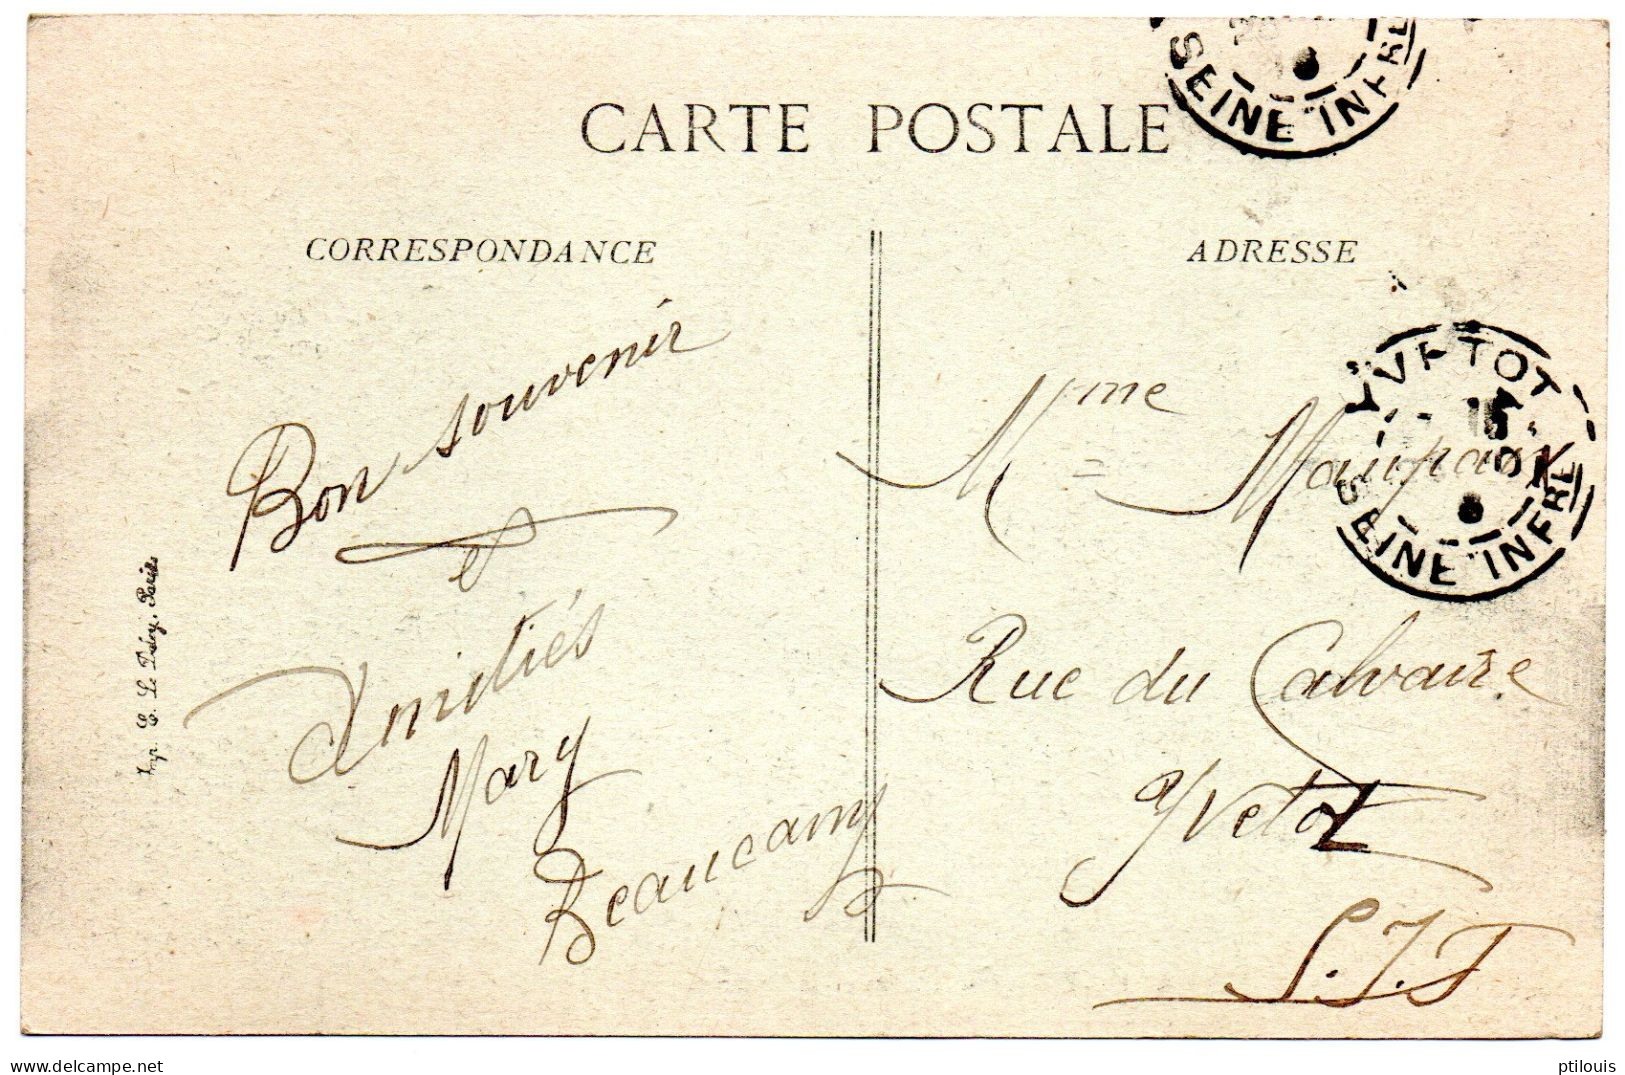 SEINE INFRE
CARTE POSTALE
CORRESPONDANCE
ADRESSE
Bon souvenir
et
Amitiés
Mary
Beaucamp
Imp. E. Le Deley, Paris
YVETOT
SEINE INFRE
Mme
Rue du Calvaire
Yvetot
S.I.F
delcampe.net
ptilouis